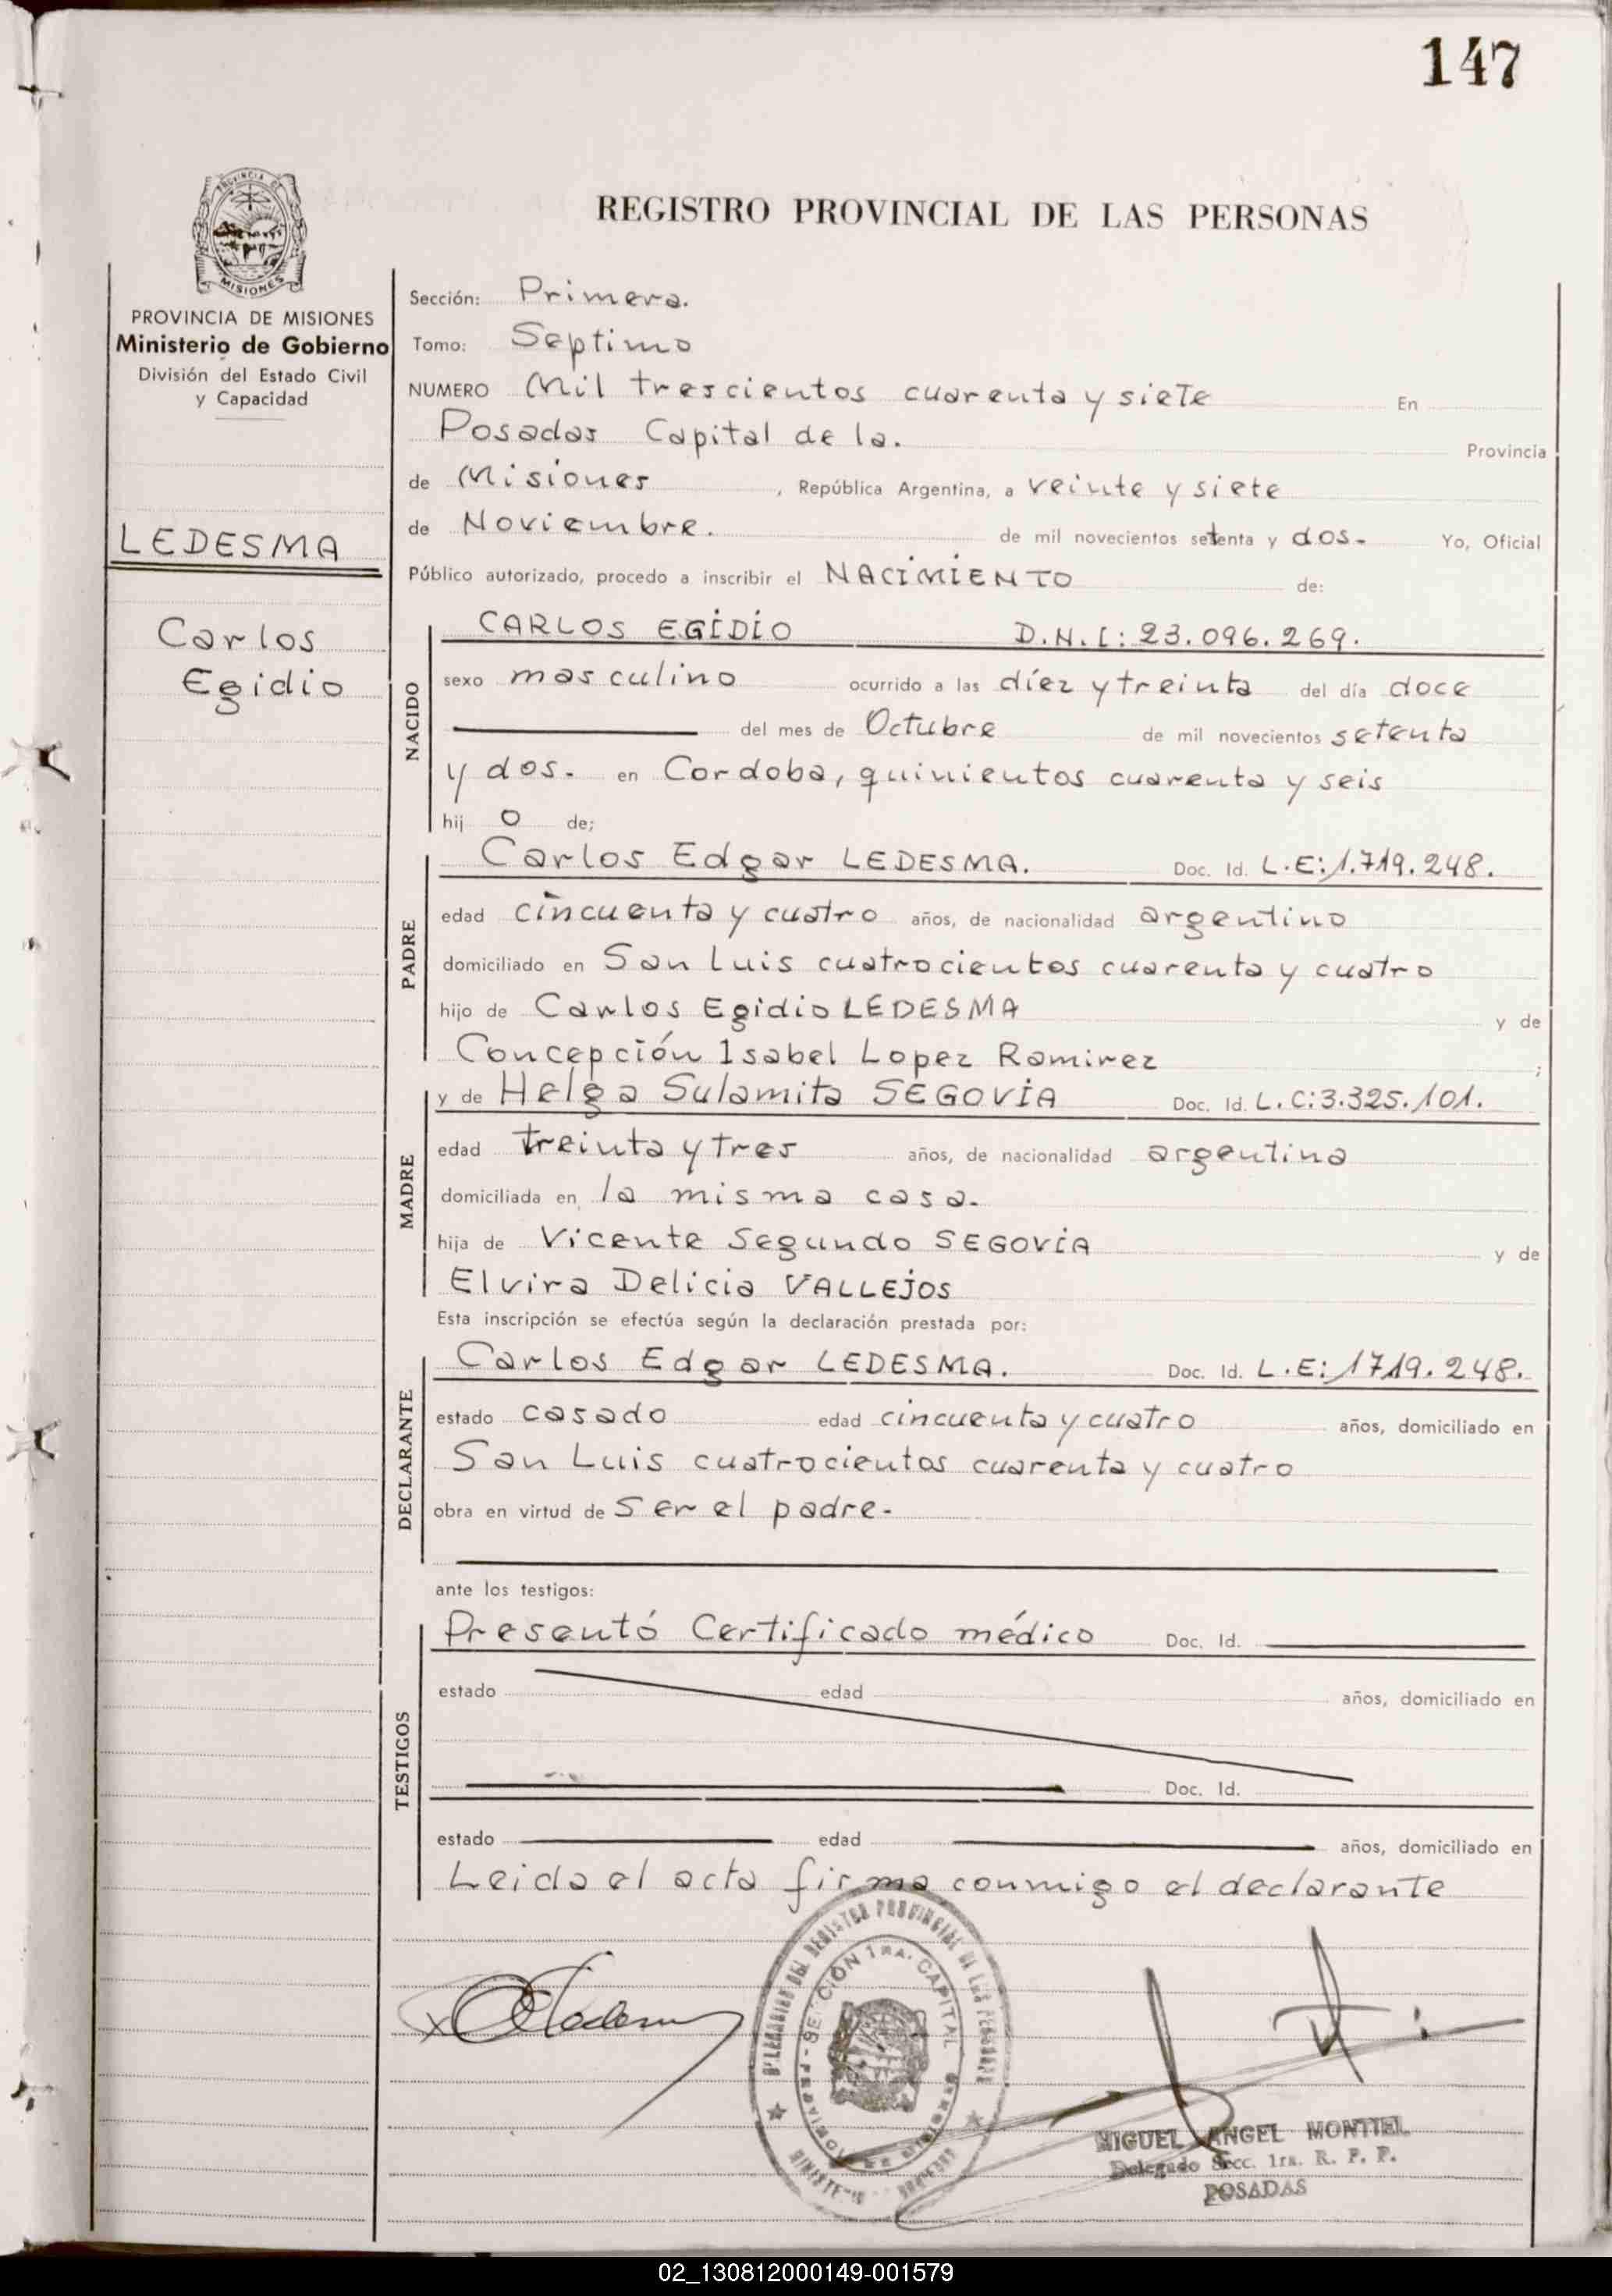 147
PROVINCIA DE
MISIONES
REGISTRO PROVINCIAL DE LAS PERSONAS
PROVINCIA DE MISIONES
Ministerio de Gobierno
División del Estado Civil
y Capacidad
LEDESMA
Carlos
Egidio
Sección: Primera.
Tomo: Septimo
NUMERO Mil trescientos cuarenta y siete En
Posadas Capital de la. Provincia
de Misiones, República Argentina, a veinte y siete
de Noviembre. de mil novecientos setenta y dos.- Yo, Oficial
Público autorizado, procedo a inscribir el NACIMIENTO de:
NACIDO
CARLOS EGIDIO D.N.I: 23.096.269.
sexo masculino ocurrido a las diez y treinta del día doce
del mes de Octubre de mil novecientos setenta
y dos.- en Cordoba, quinientos cuarenta y seis
hij o de;
PADRE
Carlos Edgar LEDESMA. Doc. Id. L.E: 1.719.248.
edad cincuenta y cuatro años, de nacionalidad argentino
domiciliado en San Luis cuatrocientos cuarenta y cuatro
hijo de Carlos Egidio LEDESMA y de
Concepción Isabel Lopez Ramirez ;
MADRE
y de Helga Sulamita SEGOVIA Doc. Id. L.C: 3.325.101.
edad treinta y tres años, de nacionalidad argentina
domiciliada en la misma casa.-
hija de Vicente Segundo SEGOVIA y de
Elvira Delicia VALLEJOS
Esta inscripción se efectúa según la declaración prestada por:
DECLARANTE
Carlos Edgar LEDESMA. Doc. Id. L.E: 1719.248.
estado casado edad cincuenta y cuatro años, domiciliado en
San Luis cuatrocientos cuarenta y cuatro
obra en virtud de ser el padre.-
ante los testigos:
TESTIGOS
Presentó Certificado médico Doc. Id.
estado edad años, domiciliado en
Doc. Id.
estado edad años, domiciliado en
Leida el acta firma conmigo el declarante
DEL REGISTRO PROVINCIAL DE LAS PERSONAS
SECCIÓN 1RA. CAPITAL
MIGUEL ANGEL MONTIEL
Delegado Secc. 1ra. R. P. P.
POSADAS
02_130812000149-001579